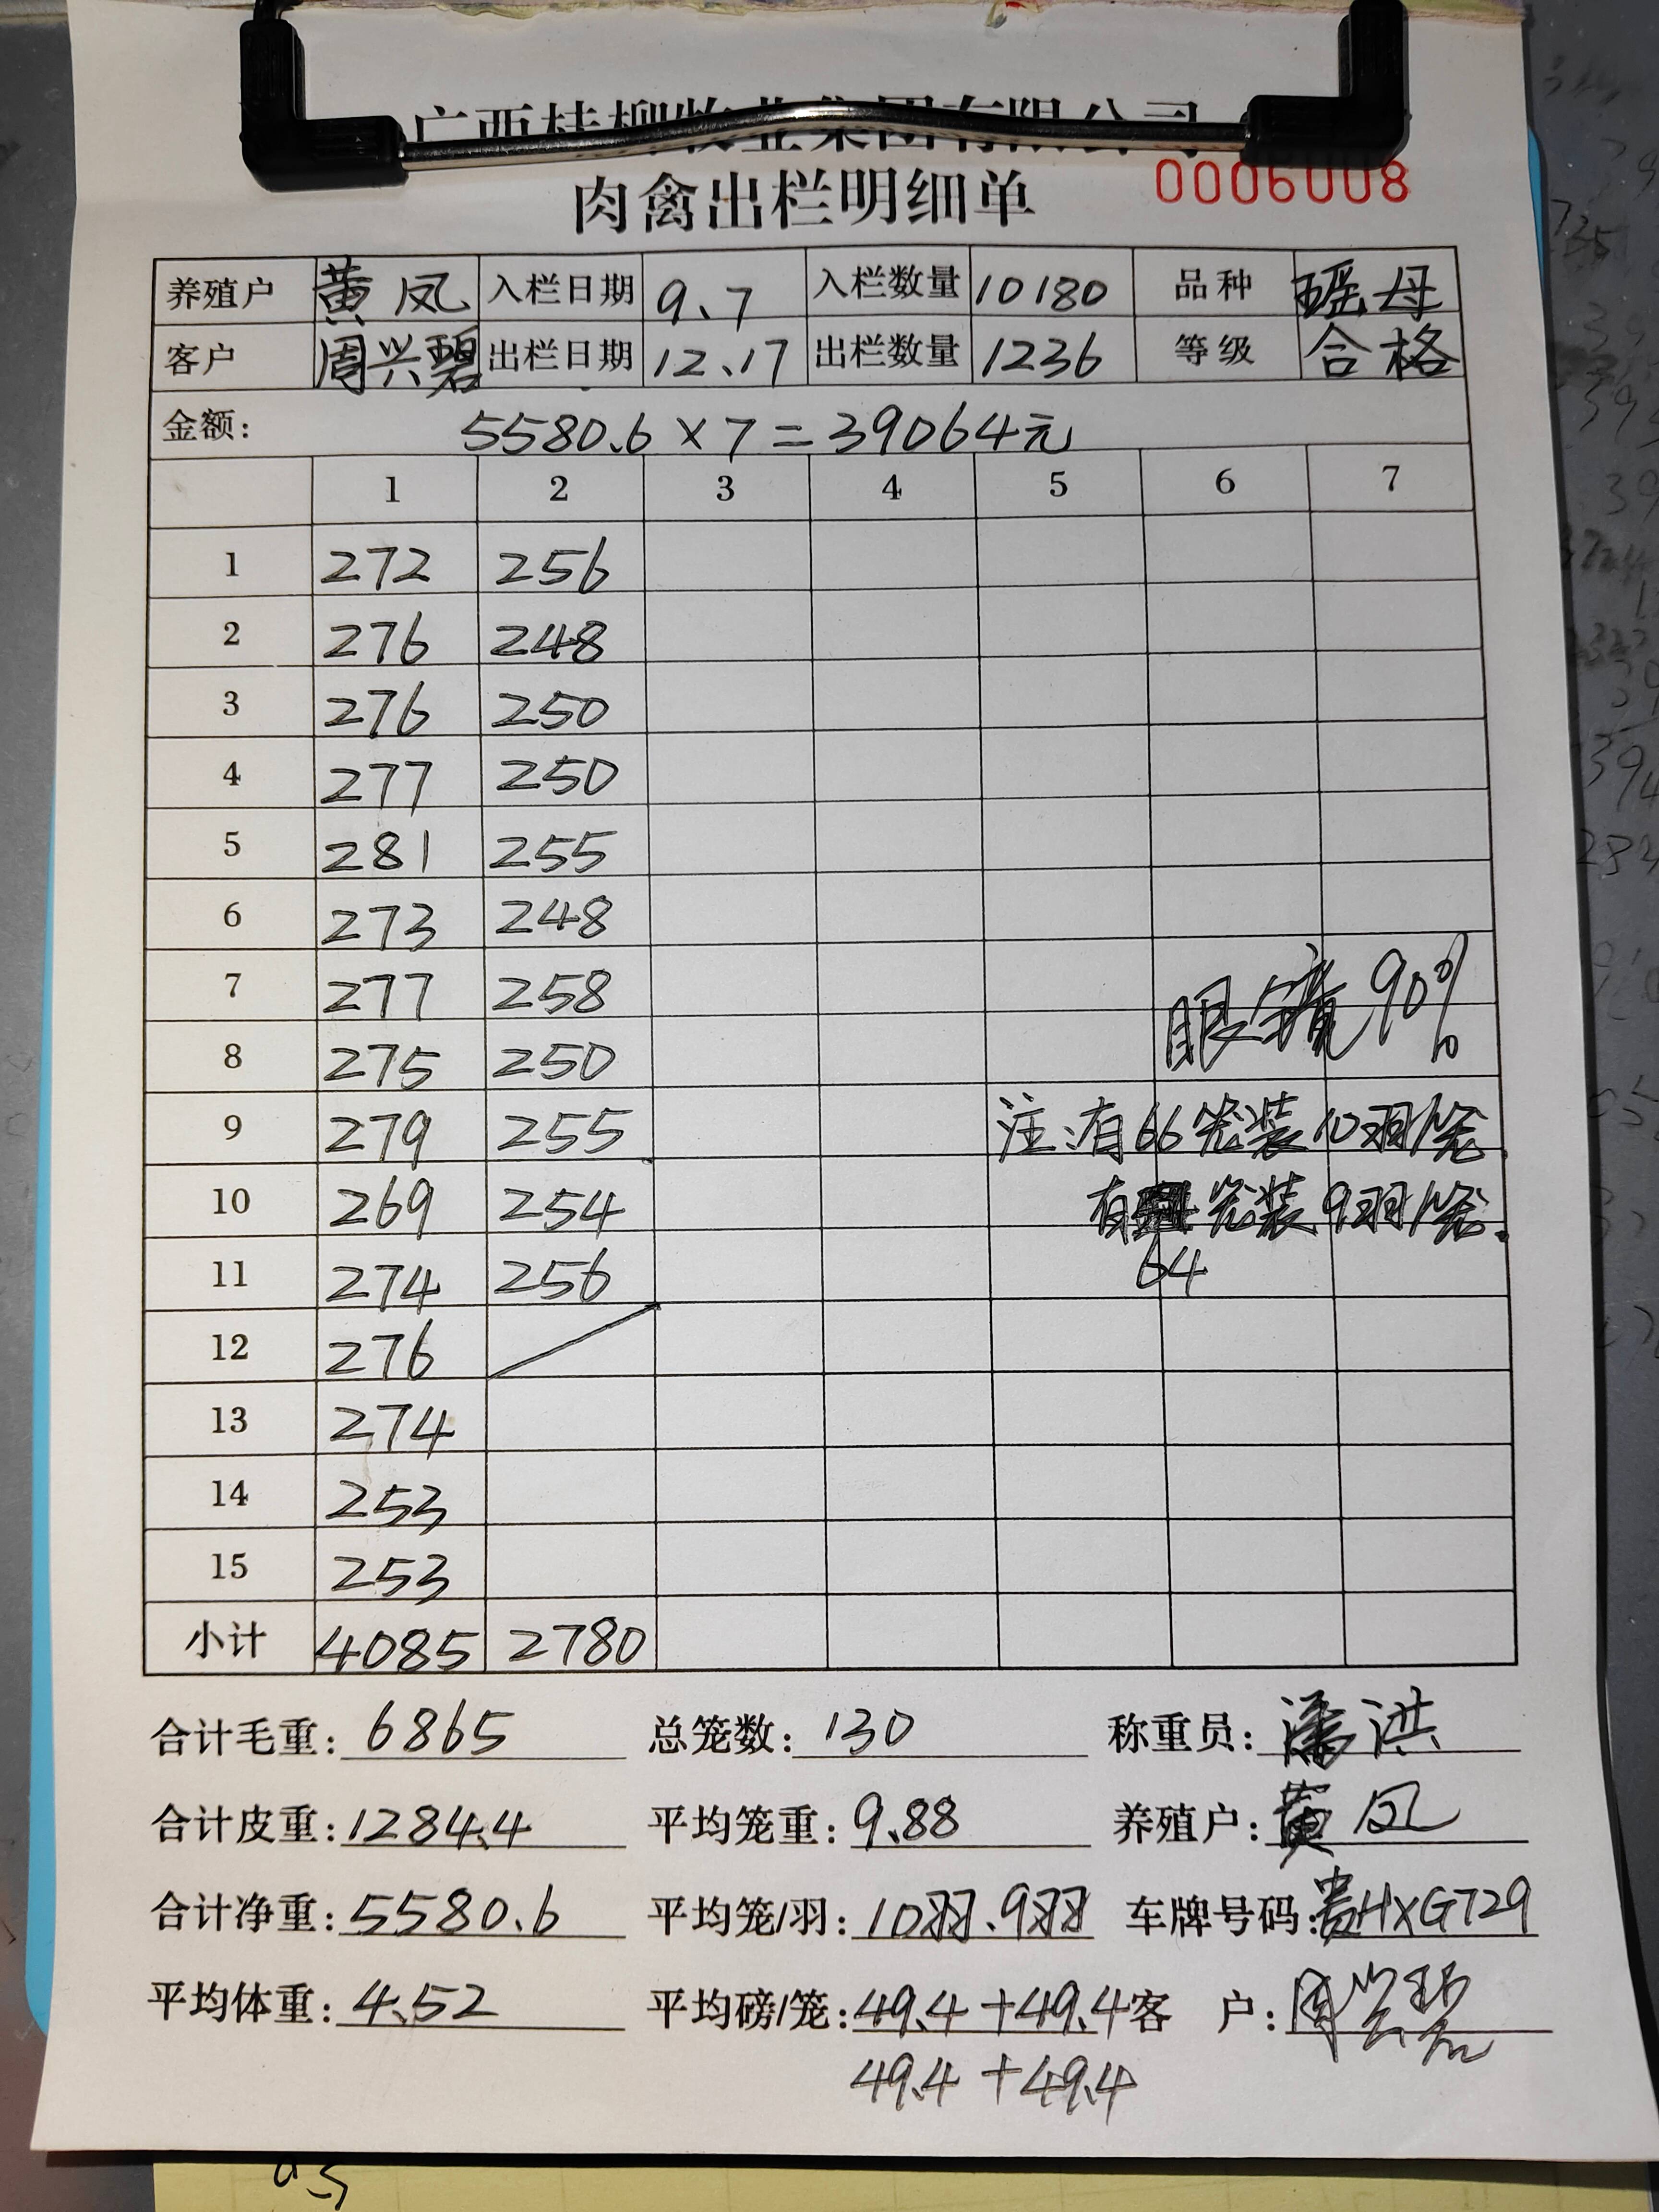 广西桂柳牧业集团有限公司
肉禽出栏明细单 0006008
养殖户 黄凤 入栏日期 9.7 入栏数量 10180 品种 瑶母
客户 周兴碧 出栏日期 12.17 出栏数量 1236 等级 合格
金额: 5580.6×7=39064元
1 2 3 4 5 6 7
1 272 256
2 276 248
3 276 250
4 277 250
5 281 255
6 273 248
7 277 258
眼 90%
8 275 250
9 279 255 注:有66笼装10羽/笼.
10 269 254 有笼装9羽/笼.
64
11 274 256
12 276
13 274
14 253
15 253
小计 4085 2780
合计毛重: 6865 总笼数: 130 称重员: 潘洪
合计皮重: 1284.4 平均笼重: 9.88 养殖户: 黄凤
合计净重: 5580.6 平均笼/羽: 10羽.9羽 车牌号码: 贵HXG729
平均体重: 4.52 平均磅/笼: 49.4+49.4 客 户: 周兴碧
49.4+49.4